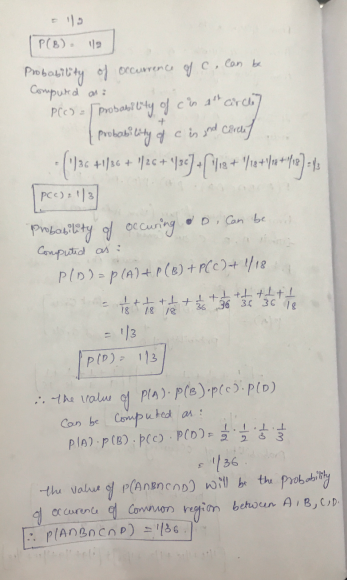 = 1/2
P(B) = 1/2
Probability of occurrence of C, Can be
Computed as:
P(C) = [probability of C in 1st circle]
+
[probability of C in 2nd circle]
= [1/36 + 1/36 + 1/36 + 1/36] + [1/18 + 1/18 + 1/18 + 1/18] = 1/3
P(C) = 1/3
Probability of occuring D, Can be
Computed as:
P(D) = P(A) + P(B) + P(C) + 1/18
= 1/18 + 1/18 + 1/18 + 1/36 + 1/36 + 1/36 + 1/36 + 1/18
= 1/3
P(D) = 1/3
∴ the value of P(A)·P(B)·P(C)·P(D)
Can be Computed as:
P(A)·P(B)·P(C)·P(D) = 1/2 · 1/2 · 1/3 · 1/3
= 1/36
the value of P(A∩B∩C∩D) will be the probability
of occurence of Common region between A, B, C, D.
∴ P(A∩B∩C∩D) = 1/36.